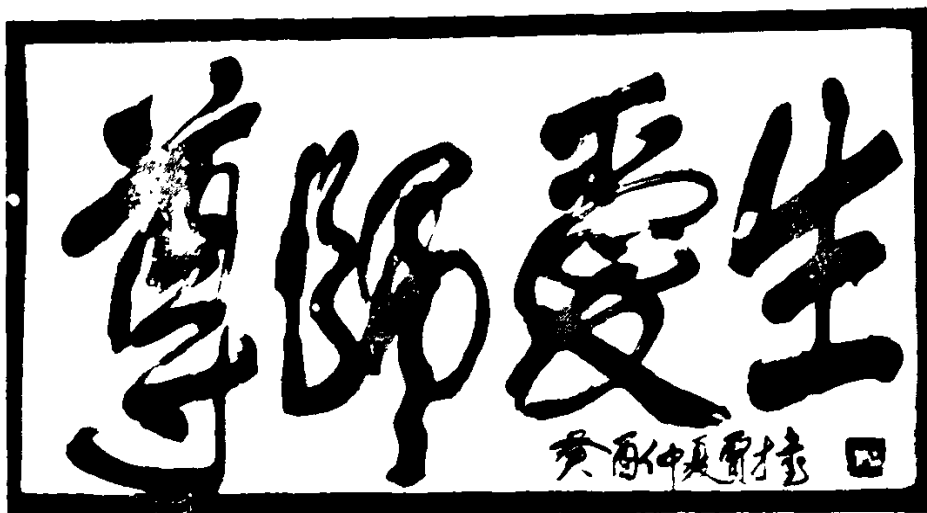 尊師愛生
癸酉仲夏賈才